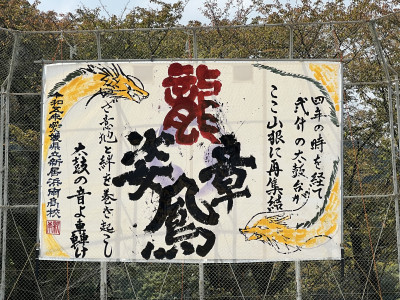 四年の時を経て
弐什の太鼓台が
ここ山根に再集結
龍
章
鳳
姿
意地と絆を巻き起こし
太鼓の音よ轟け
令和五年愛媛県立新居浜南高校